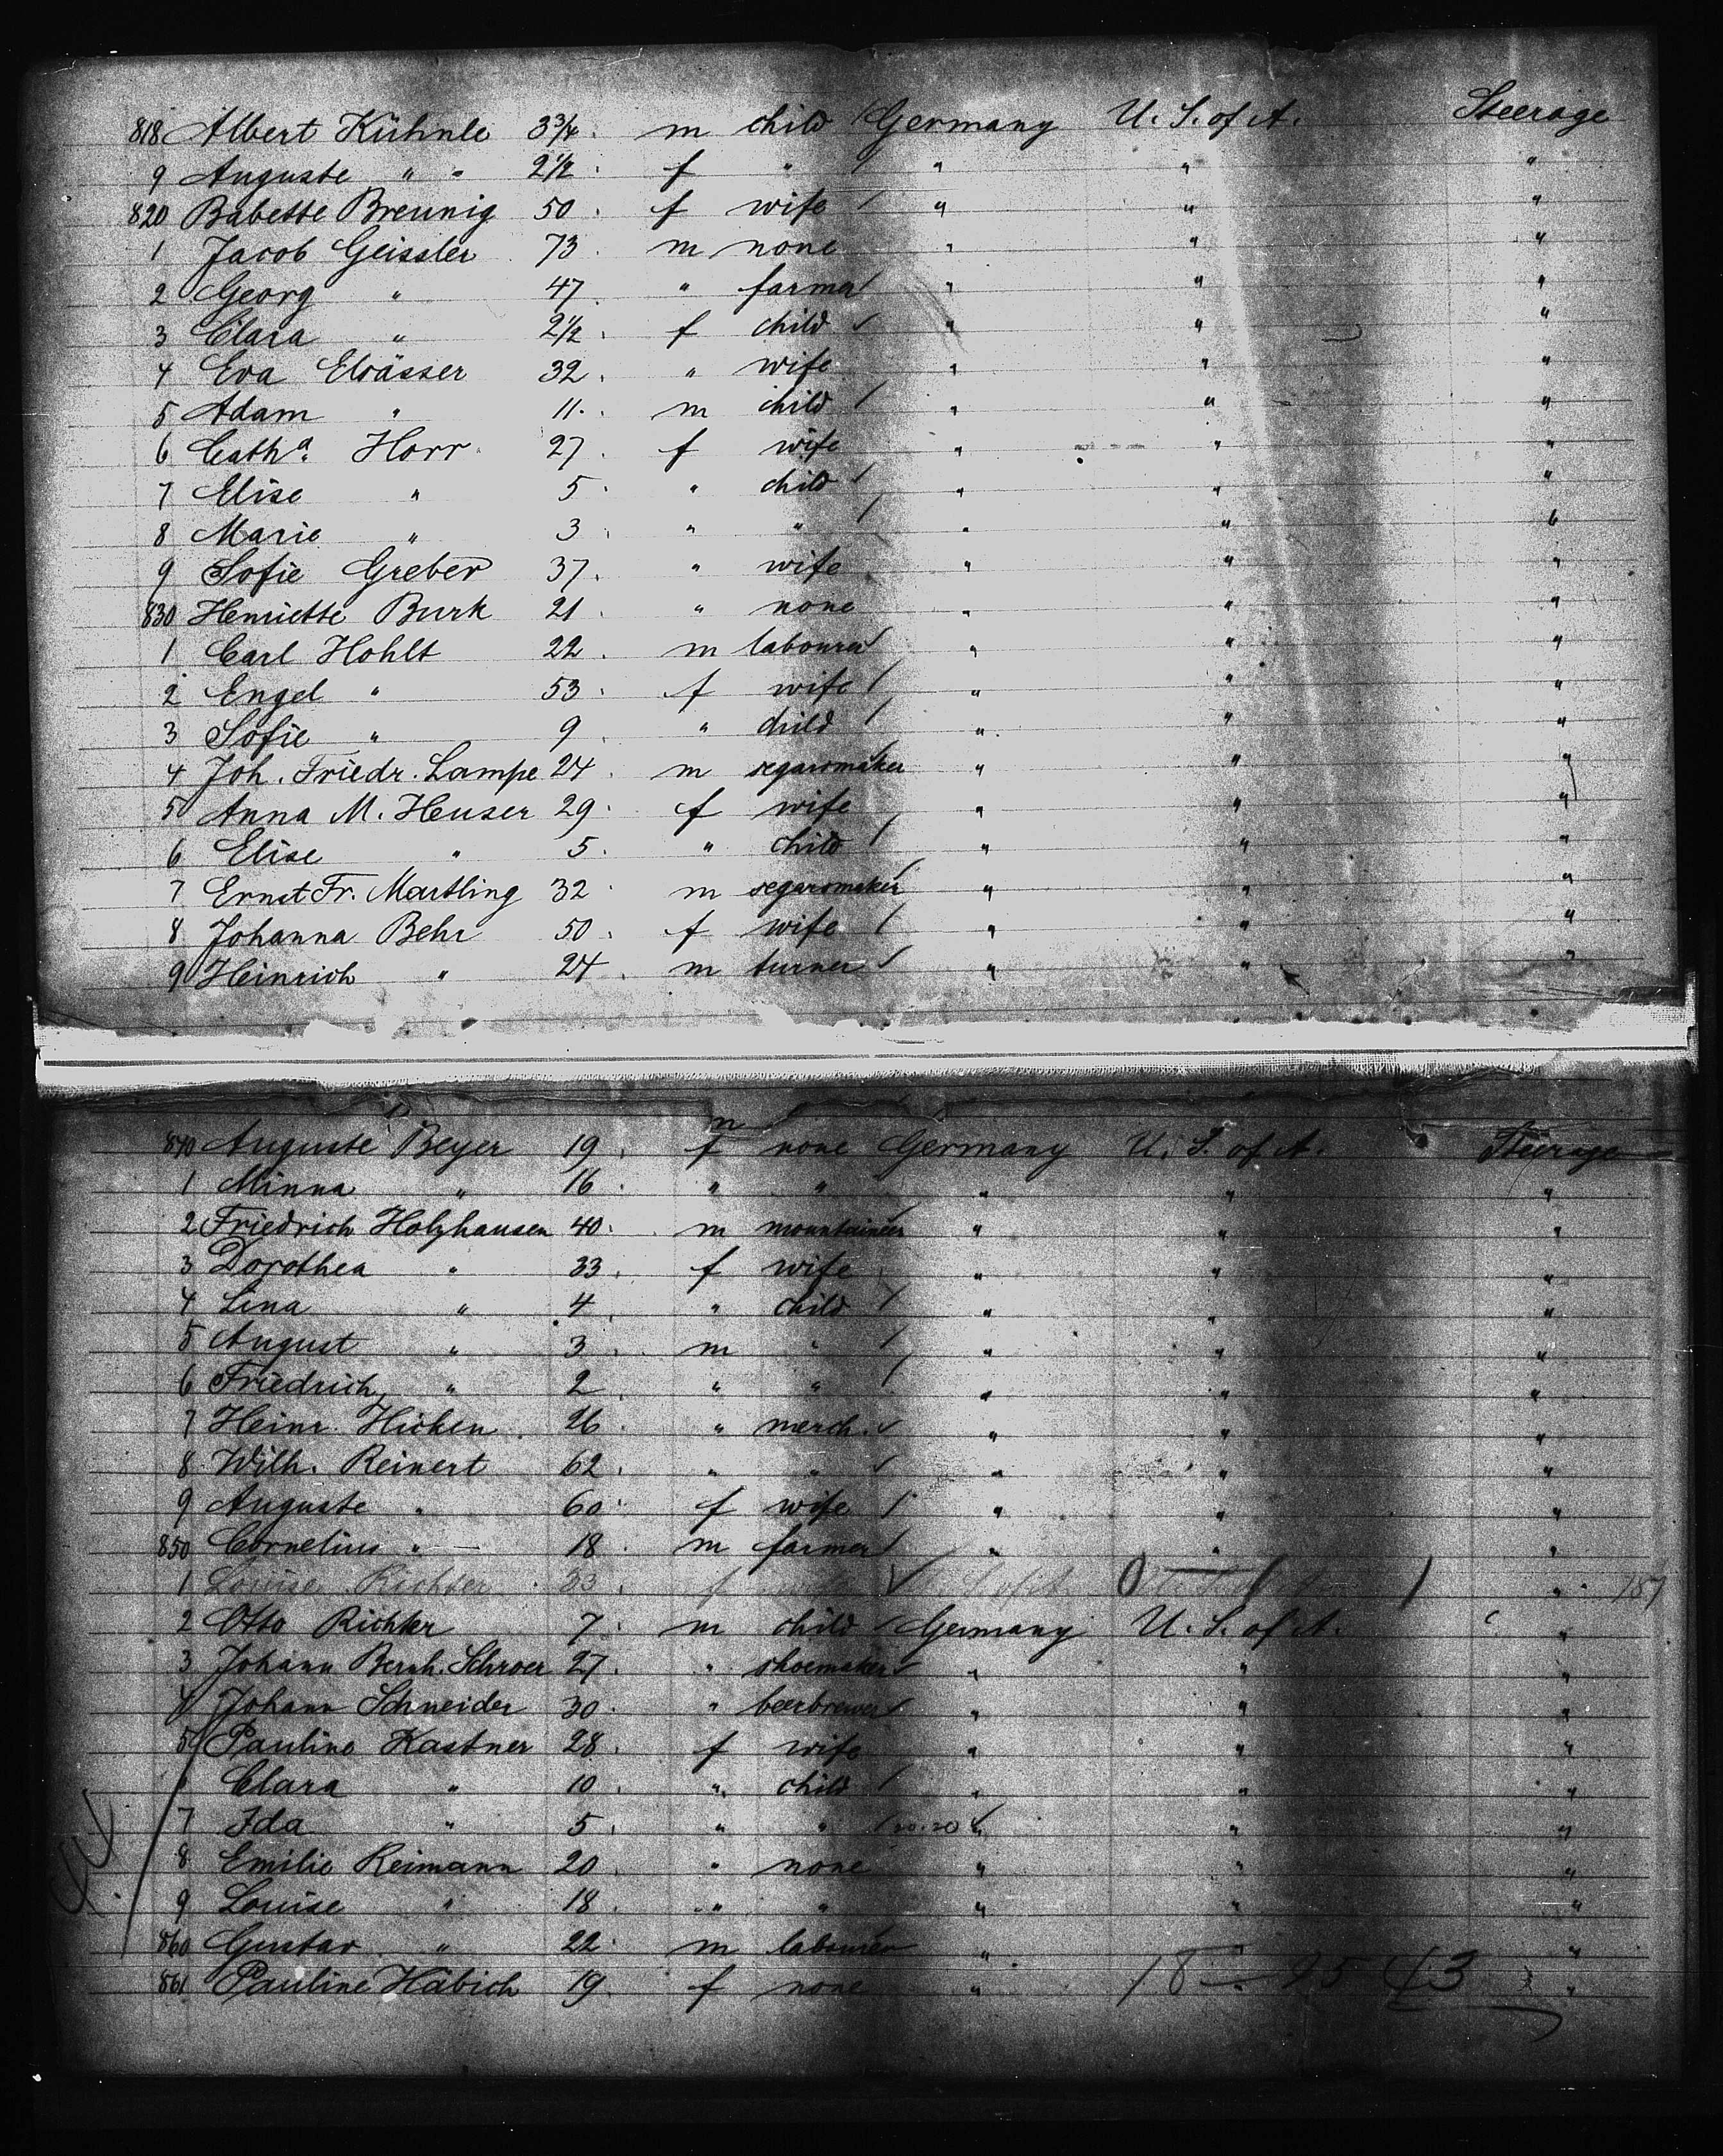 818 Albert Kühnle 3 3/4 m child Germany U. S. of A. Steerage
9 Auguste " " 2 1/2 f " " " "
820 Babette Breunig 50 f wife " " "
1 Jacob Geissler 73 m none " " "
2 Georg " 47 " farmer " " "
3 Clara " 2 1/2 f child " " "
4 Eva Elsässer 32 " wife " " "
5 Adam " 11 m child " " "
6 Cath.a Horr 27 f wife " " "
7 Elise " 5 " child " " "
8 Marie " 3 " " " " "
9 Sofie Greber 37 " wife " " "
830 Henriette Burk 21 " none " " "
1 Carl Hohlt 22 m labourer " " "
2 Engel " 53 f wife " " "
3 Sofie " 9 " child " " "
4 Joh. Friedr. Lampe 24 m segarsmaker " " "
5 Anna M. Heuser 29 f wife " " "
6 Elise " 5 " child " " "
7 Ernst Fr. Martling 32 m segarsmaker " " "
8 Johanna Behr 50 f wife " " "
9 Heinrich " 24 m turner " " "
840 Auguste Beyer 19 f none Germany U. S. of A. Steerage
1 Minna " 16 " " " " "
2 Friedrich Holzhausen 40 m mountaineer " " "
3 Dorothea " 33 f wife " " "
4 Lina " 4 " child " " "
5 August " 3 m " " " "
6 Friedrich " 2 " " " " "
7 Heinr. Hicken 26 " merch. " " "
8 Wilh. Reinert 62 " " " " "
9 Auguste " 60 f wife " " "
850 Cornelius " 18 m farmer " " "
1 Louise Richter 33 f "
2 Otto Richter 7 m child Germany U. S. of A. "
3 Johann Bernh. Schroer 27 " shoemaker " " "
4 Johann Schneider 30 " beerbrewer " " "
5 Pauline Kastner 28 f wife " " "
Clara " 10 " child " " "
7 Ida " 5 " " " " "
8 Emilie Reimann 20 " none " " "
9 Louise " 18 " " " " "
860 Gustav " 22 m labourer " " "
861 Pauline Häbich 19 f none " " "